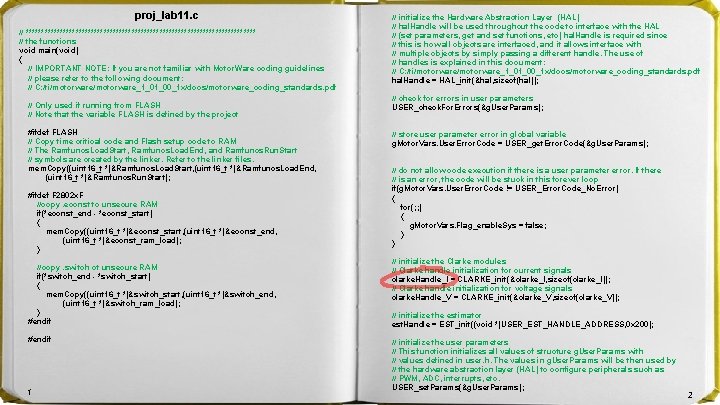 proj_lab11. c
// **********************************************************************
// the functions
void main(void)
{
// IMPORTANT NOTE: If you are not familiar with MotorWare coding guidelines
// please refer to the following document:
// C:/ti/motorware/motorware_1_01_00_1x/docs/motorware_coding_standards.pdf
// Only used if running from FLASH
// Note that the variable FLASH is defined by the project
#ifdef FLASH
// Copy time critical code and Flash setup code to RAM
// The RamfuncsLoadStart, RamfuncsLoadEnd, and RamfuncsRunStart
// symbols are created by the linker. Refer to the linker files.
mem. Copy((uint16_t *)&RamfuncsLoadStart,(uint16_t *)&RamfuncsLoadEnd,
(uint16_t *)&RamfuncsRunStart);
#ifdef F2802xF
//copy .econst to unsecure RAM
if(*econst_end - *econst_start)
{
mem. Copy((uint16_t *)&econst_start,(uint16_t *)&econst_end,
(uint16_t *)&econst_ram_load);
}
//copy .switch ot unsecure RAM
if(*switch_end - *switch_start)
{
mem. Copy((uint16_t *)&switch_start,(uint16_t *)&switch_end,
(uint16_t *)&switch_ram_load);
}
#endif
#endif
1
// initialize the Hardware Abstraction Layer (HAL)
// halHandle will be used throughout the code to interface with the HAL
// (set parameters, get and set functions, etc) halHandle is required since
// this is how all objects are interfaced, and it allows interface with
// multiple objects by simply passing a different handle. The use of
// handles is explained in this document:
// C:/ti/motorware/motorware_1_01_00_1x/docs/motorware_coding_standards.pdf
hal. Handle = HAL_init(&hal,sizeof(hal));
// check for errors in user parameters
USER_checkForErrors(&gUserParams);
// store user parameter error in global variable
gMotorVars. UserErrorCode = USER_getErrorCode(&gUserParams);
// do not allow code execution if there is a user parameter error. If there
// is an error, the code will be stuck in this forever loop
if(gMotorVars. UserErrorCode != USER_ErrorCode_NoError)
{
for(;;)
{
gMotorVars. Flag_enableSys = false;
}
}
// initialize the Clarke modules
// Clarke handle initialization for current signals
clarkeHandle_I = CLARKE_init(&clarke_I,sizeof(clarke_I));
// Clarke handle initialization for voltage signals
clarkeHandle_V = CLARKE_init(&clarke_V,sizeof(clarke_V));
// initialize the estimator
estHandle = EST_init((void *)USER_EST_HANDLE_ADDRESS,0x200);
// initialize the user parameters
// This function initializes all values of structure gUserParams with
// values defined in user.h. The values in gUserParams will be then used by
// the hardware abstraction layer (HAL) to configure peripherals such as
// PWM, ADC, interrupts, etc.
USER_setParams(&gUserParams);
2